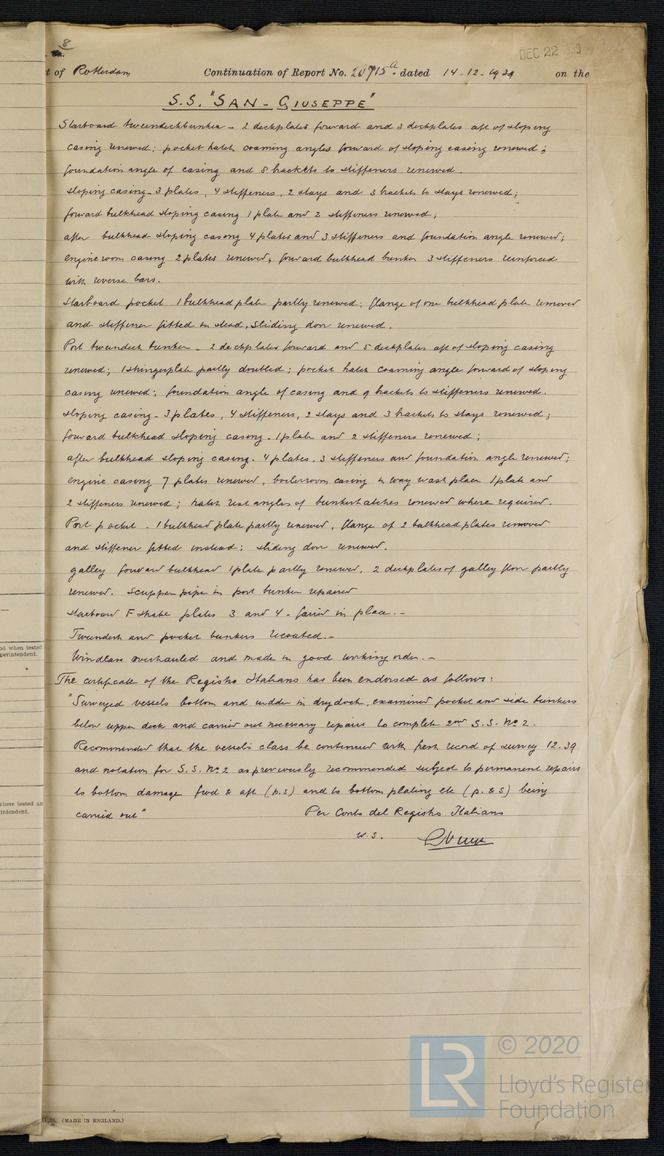 8
DEC 22
t of Rotterdam Continuation of Report No. 20715a dated 14-12-1939 on the
S.S. "SAN-GIUSEPPE"
Starboard tweendeckbunker - 2 deckplates forward and 3 deckplates aft of sloping
casing renewed; pocket hatch coaming angles forward of sloping casing renewed;
foundation angle of casing and 8 brackets to stiffeners renewed.
sloping casing - 3 plates, 4 stiffeners, 2 stays and 3 brackets to stays renewed;
forward bulkhead sloping casing 1 plate and 2 stiffeners renewed;
after bulkhead sloping casing 4 plates and 3 stiffeners and foundation angle renewed;
engine room casing 2 plates renewed, forward bulkhead bunker 3 stiffeners reinforced
with reverse bars.
Starboard pocket 1 bulkhead plate partly renewed; flange of one bulkhead plate removed
and stiffener fitted in stead, sliding door renewed.
Port tweendeck bunker - 2 deckplates forward and 5 deckplates aft of sloping casing
renewed; 1 stringerplate partly doubled; pocket hatch coaming angle forward of sloping
casing renewed; foundation angle of casing and 9 brackets to stiffeners renewed.
sloping casing - 3 plates, 4 stiffeners, 2 stays and 3 brackets to stays renewed;
forward bulkhead sloping casing - 1 plate and 2 stiffeners renewed;
after bulkhead sloping casing - 4 plates, 3 stiffeners and foundation angle renewed;
engine casing 7 plates renewed, boilerroom casing in way wash place 1 plate and
2 stiffeners renewed; hatch rest angles of bunkerhatches renewed where required.
Port pocket - 1 bulkhead plate partly renewed, flange of 2 bulkhead plates removed
and stiffener fitted instead; sliding door renewed.
galley forward bulkhead 1 plate partly renewed, 2 deckplates of galley floor partly
renewed. scupper pipe in port bunker repaired
Starboard F strake plates 3 and 4 - faired in place. -
Tweendeck and pocket bunkers recoated. -
Windlass overhauled and made in good working order. -
The certificate of the Registro Italiano has been endorsed as follows:
"Surveyed vessels bottom and rudder in drydock, examined pocket and side bunkers
below upper deck and carried out necessary repairs to complete 2nd S.S. No 2.
Recommended that the vessel's class be continued with fresh record of survey 12.39
and notation for S.S. No 2 as previously recommended subject to permanent repairs
to bottom damage fwd & aft (p.s) and to bottom plating etc (p. & s) being
carried out"
Per Conto del Registro Italiano
nd when tested
perintendent.
where tested an
intendent.
(MADE IN ENGLAND.)
LR
© 2020
Lloyd's Registe
Foundation